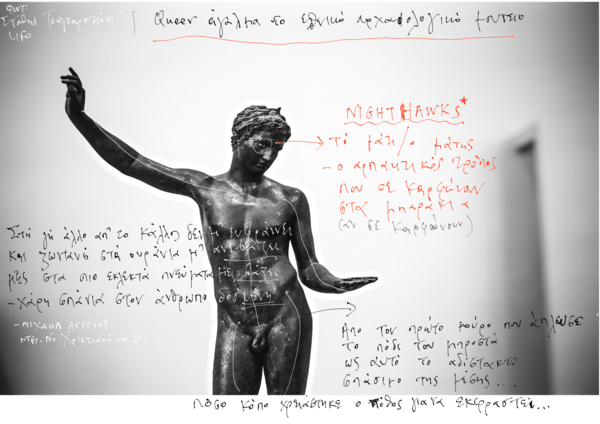 φωτ.
Στάθης
LIFO
Queer άγαλμα το εθνικό αρχαιολογικό μουσείο
NIGHTHAWKS*
το μάτι / ο μάτης
- ο αρπακτικός τρόπος
που σε καρφώνουν
στα μπαράκια
(αν σε καρφώνουν)
Στη γη άλλο απ' το κάλλος δεν μ' ευφραίνει
και ζωντανό στα ουράνια μ' ανεβάζει
μες στα πιο εκλεκτά πνεύματα με βάζει
- χάρη σπάνια στον άνθρωπο δοσμένη
- ΜΙΧΑΗΛ ΑΓΓΕΛΟΣ
Απο τον πρώτο κούρο που άπλωσε
το πόδι του μπροστά
ως αυτό το αδίστακτο
σπάσιμο της μέσης ....
πόσο κόπο χρειάστηκε ο πόθος για να εκφραστεί...